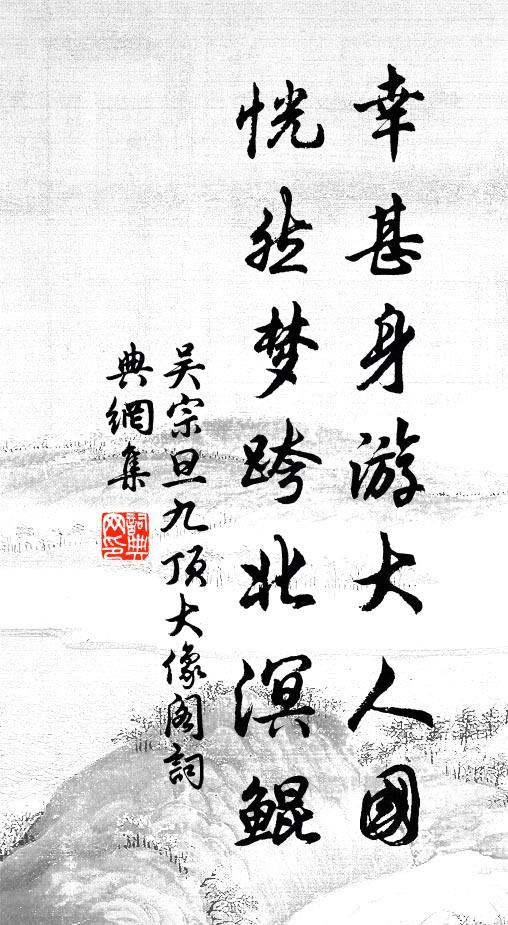 幸甚身游大人國
恍然梦跨北溟鲲
吴宗旦九顶大像阁詞
典網集
詞典网印